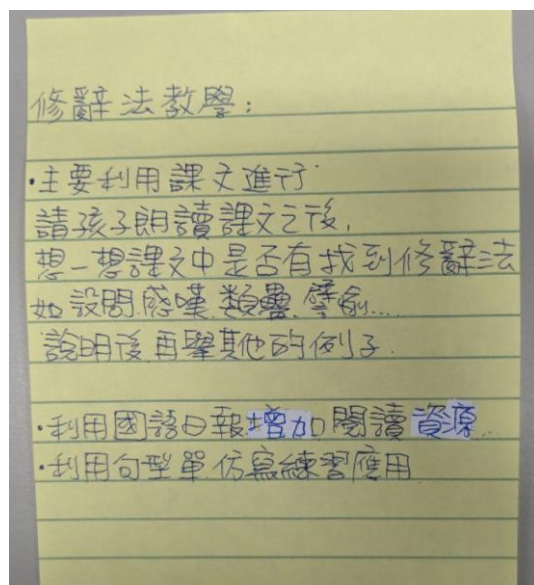 修辭法教學：
·主要利用課文進行
請孩子朗讀課文之後，
想一想課文中是否有找到修辭法
如設問.感嘆.類疊.譬喻....
說明後再舉其他的例子.
·利用國語日報增加閱讀資源.
·利用句型單.仿寫練習應用